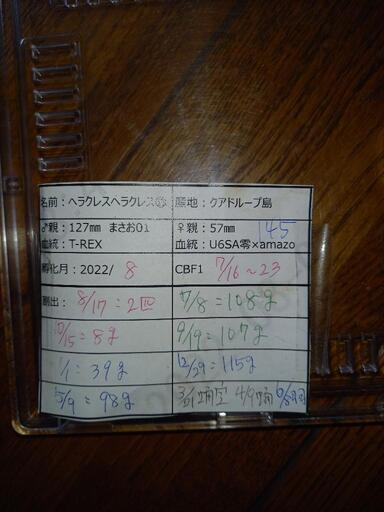 名前：ヘラクレスヘラクレス
産地：グアドループ島
♂親：127mm まさお01
♀親：57mm 145
血統：T-REX
血統：U6SA零×amazo
孵化月：2022/ 8
CBF1 7/16～23
割出：8/17：2匹
7/8＝108g
10/15＝8g
9/19＝107g
1/1：39g
12/29＝115g
5/9＝98g
3/21蛹室 4/9蛹